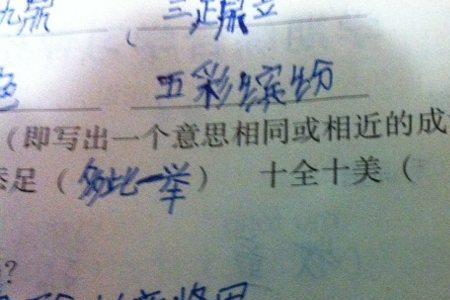 九鼎 三足鼎立
色 五彩缤纷
（即写出一个意思相同或相近的成
添足（多此一举） 十全十美（
?